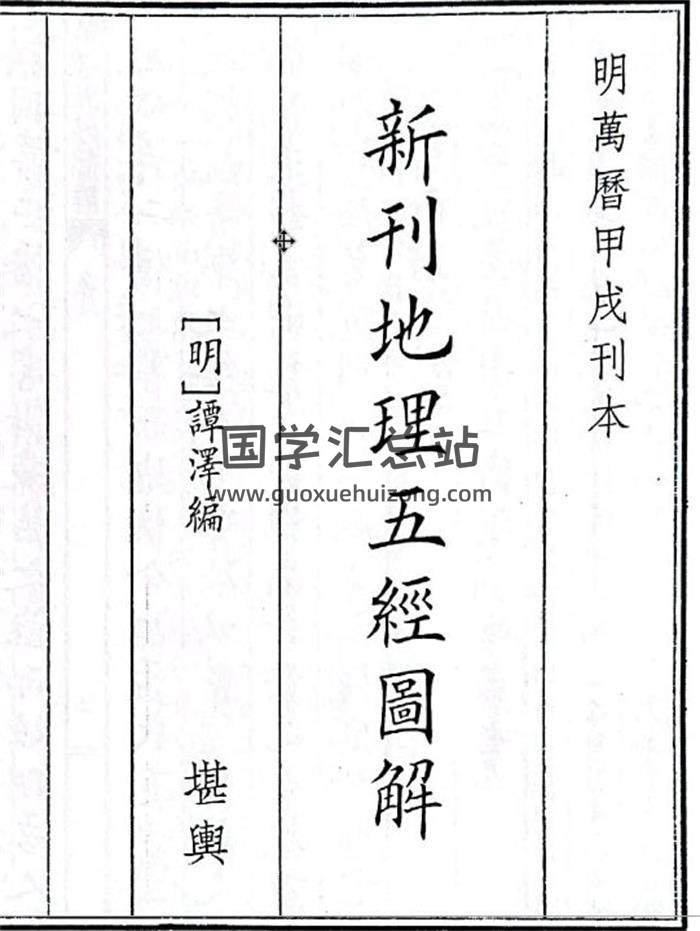 明萬曆甲戌刊本
新刊地理五經圖解
[明]譚澤編
堪輿
国学汇总站
www.guoxuehuizong.com